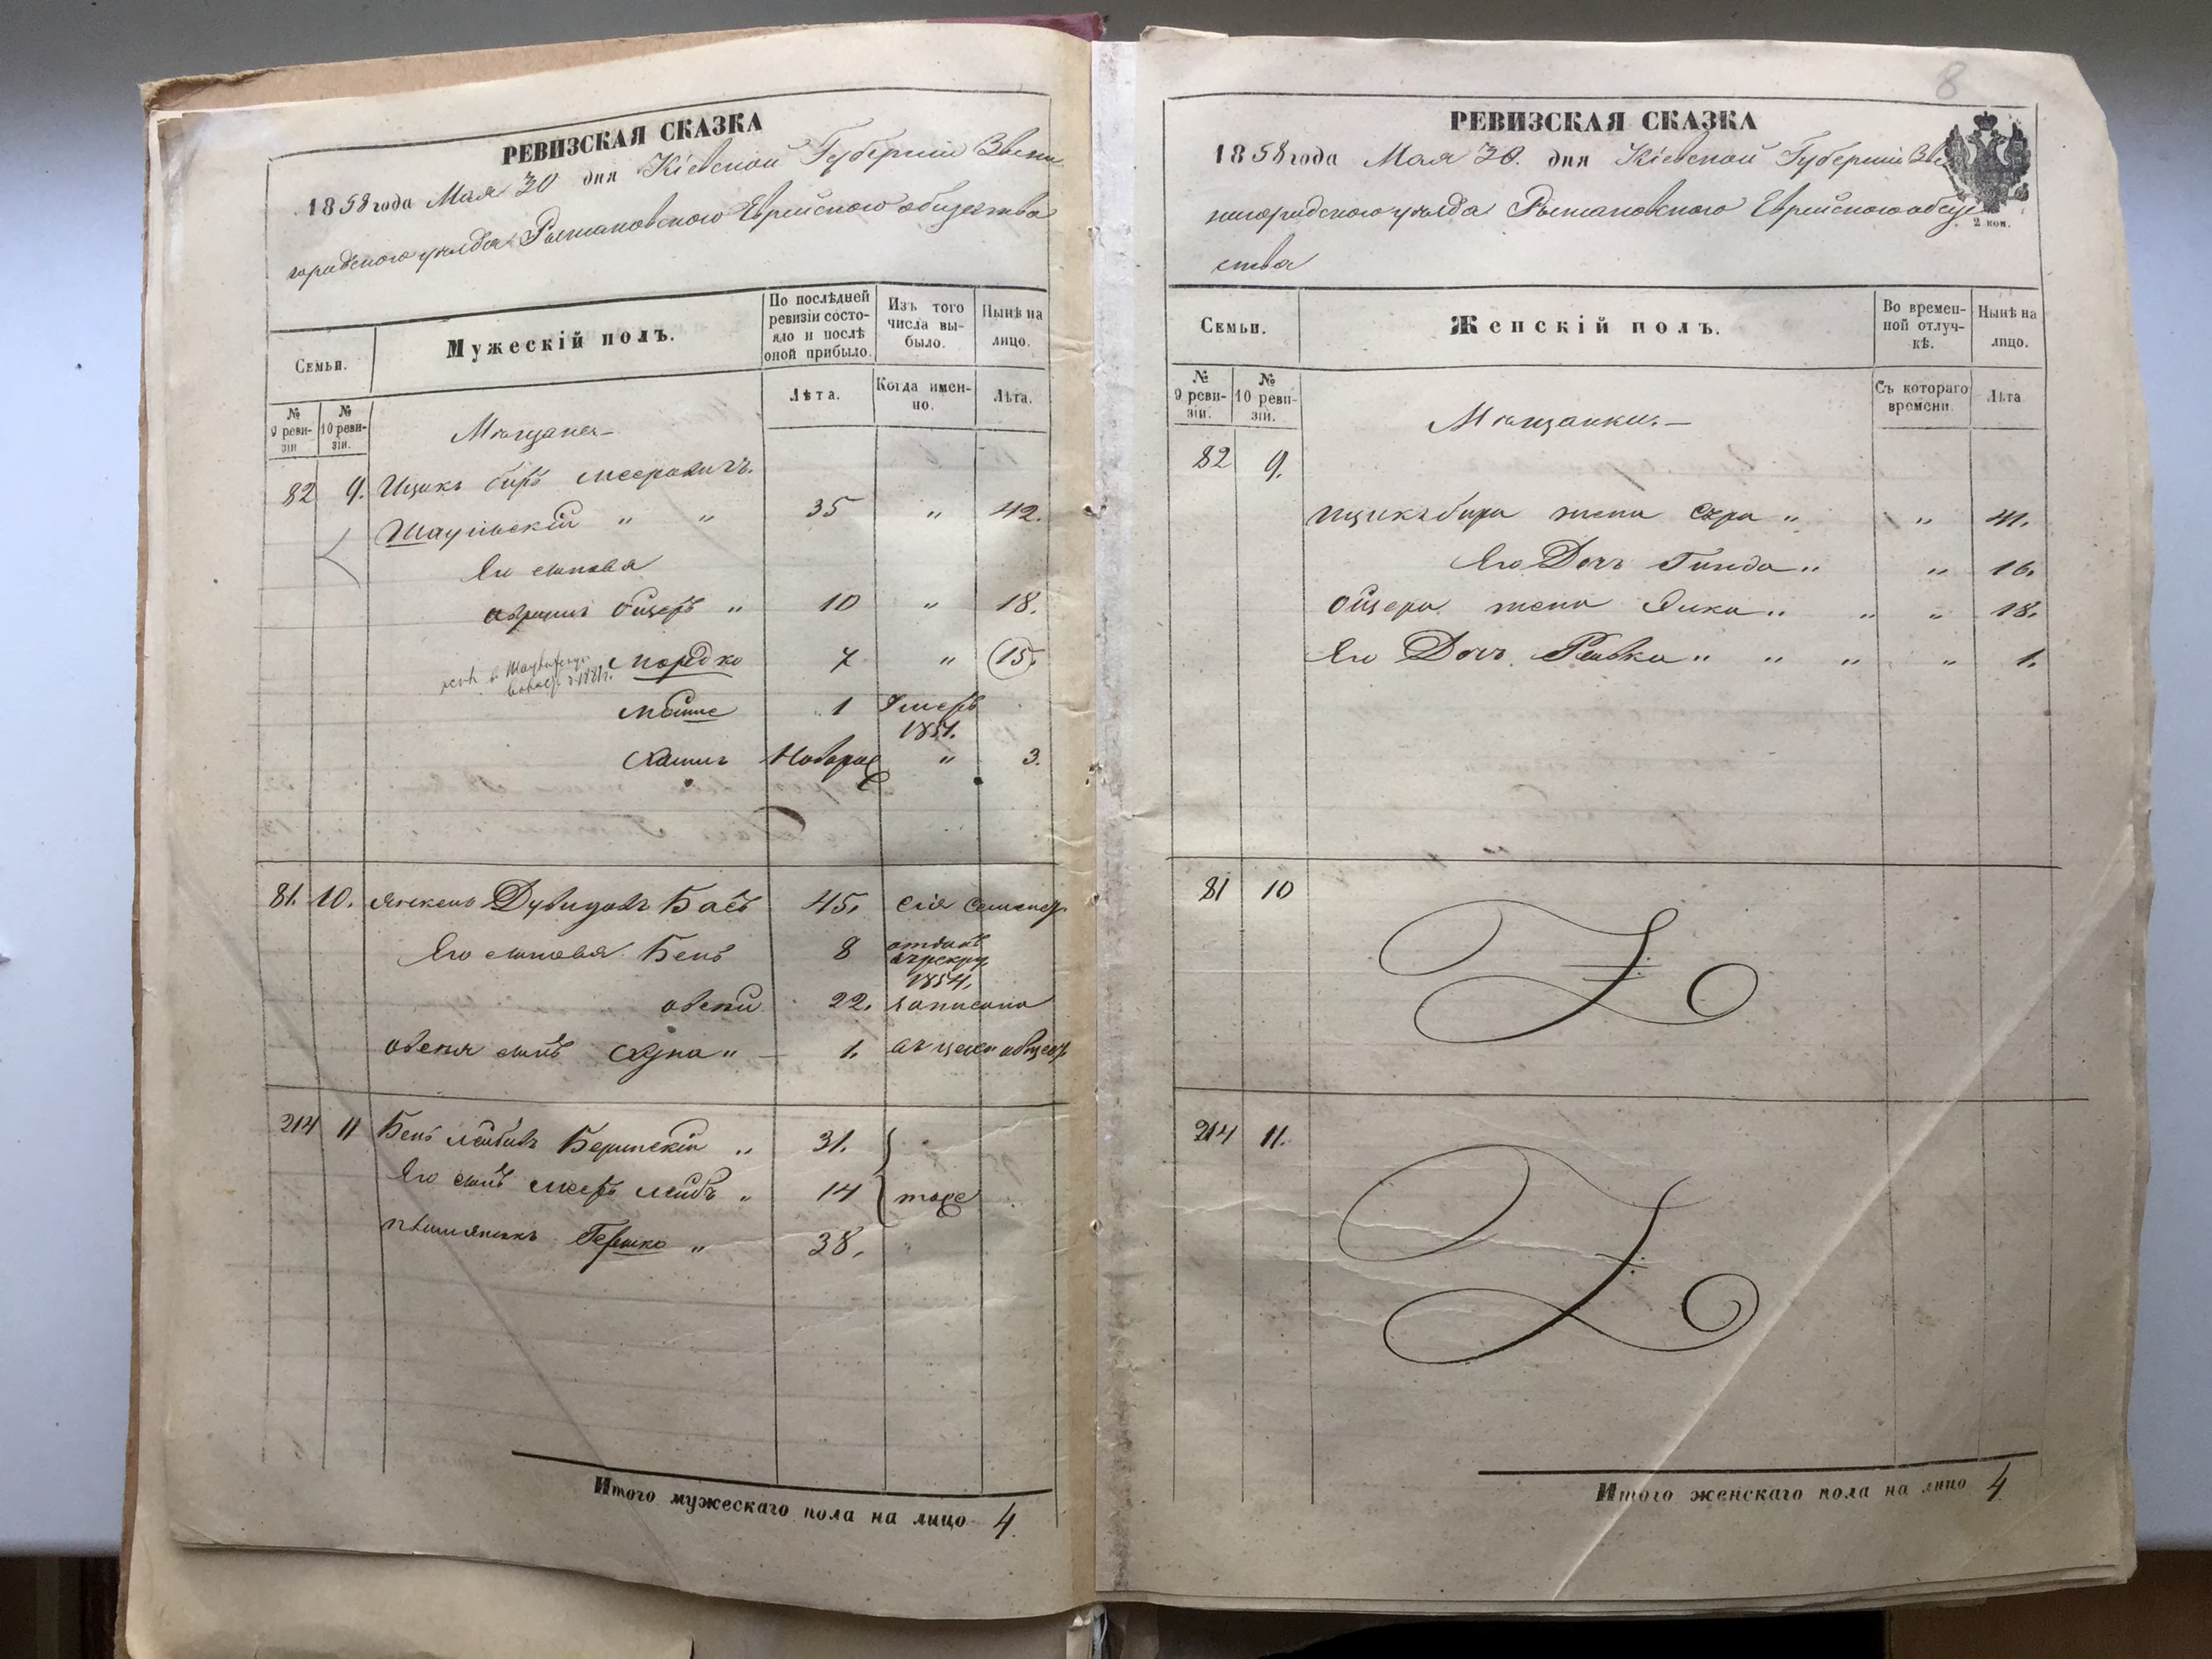 РЕВИЗСКАЯ СКАЗКА
1858 года Мая 30 дня Кіевской Губерніи Звени
городского уѣзда Рыжановского Еврейского общества
Семьи.
Мужескій полъ.
По послѣдней ревизіи состояло и послѣ оной прибыло.
Изъ того числа выбыло.
Нынѣ на лицо.
№ 9 ревизіи
№ 10 ревизіи.
Лѣта.
Когда именно.
Лѣта.
Мѣщане
82 9. Ицикъ Беръ Мееровичъ
Шаульскій " " 35 " 42.
Его сыновья
Абрамъ Ойзеръ " 10 " 18.
Мордко 7 " 15.
1881г.
Мойше 1 Умеръ 1851.
Хаимъ Новорож " 3.
81. 10. Янкель Дувидовъ Басъ 45. Сія семья
Его сыновья Бень 8 отданъ в рекру 1854.
овсей 22. записана
овсея сынъ Сруль " 1. въ цехов общес
214 11 Бень Лейбовъ Беринскій " 31.
Его сынъ Мееръ Лейбъ " 14 тоже
племянникъ Гершко " 38.
Итого мужескаго пола на лицо 4.
8
РЕВИЗСКАЯ СКАЗКА
1858 года Мая 30. дня Кіевской Губерніи Зве
нигородского уѣзда Рыжановского Еврейского обще
ства
2 коп.
Семьи.
Женскій полъ.
Во временной отлучкѣ.
Нынѣ на лицо.
№ 9 ревизіи.
№ 10 ревизіи.
Съ котораго времени.
Лѣта
Мѣщанки.
82 9.
Ицикъ бера жена Сура " " 41.
Его Дочь Гинда " " 16.
Ойзера жена Элка " " " 18.
Его Дочь Ривка " " " " 1.
81 10
214 11.
Итого женскаго пола на лицо 4